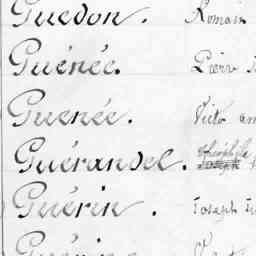 Guedon. Romain
Guénée. Pierre
Guenée. Victo
Guérandel. Joseph
Guérin. Joseph